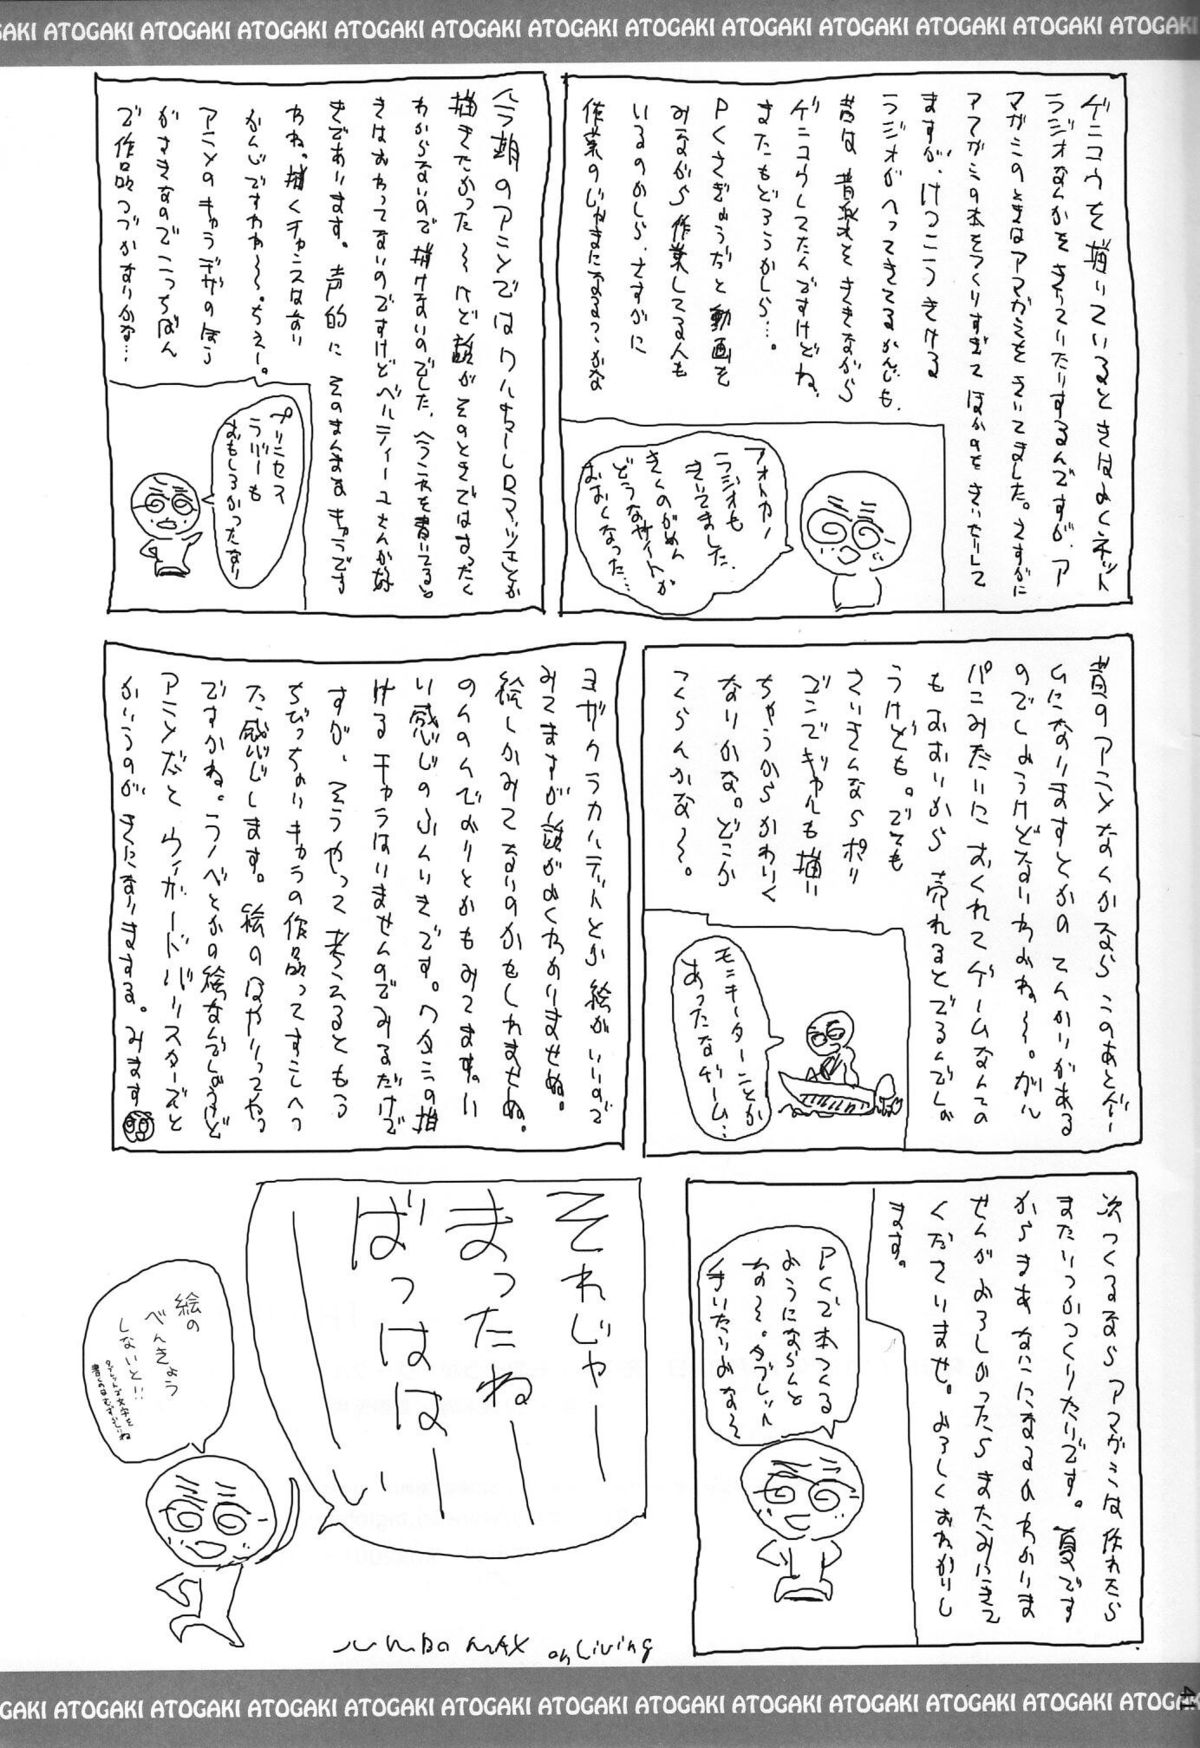 ATOGAKI ATOGAKI ATOGAKI ATOGAKI ATOGAKI ATOGAKI ATOGAKI ATOGAKI ATOGAKI ATOGAKI ATOGAKI ATOGAKI
ゲンコウを描いているときはよくネット
ラジオなんかをきいていたりするんですが、ア
マガミのときはアマガミをきいてました。さすがに
アマガミの本をつくりすぎてほかのをきいたりして
ますが、けっこうきける
ラジオがへってきてるかんじも、
昔は音楽をききながら
ゲンコウしてたんですけどね、
またもどろうかしら…。
PCさぎょうだと動画を
みながら作業してる人も
いるのかしら、さすがに
作業のじゃまになるっつかな
フォトカノ
ラジオも
きいてました、
きくのがめん
どうなサイトが
おおくなった…
今期のアニメではワルキューレロマンツェとか
描きたかった〜けど話がそのときではまったく
わからないので描けないのでした、
きはおわってないのですけどベルティーユさんが好
きであります。声的にそのまんまなキャラです
わね。描くチャンスはない
かんじですわね〜。ちぇー。
アニメのキャラデザのほう
がすきなのでこっちばん
で作品つづかないかな…
プリンセス
ラバーも
おもしろかったなり
昔のアニメなんかなら このあとゲー
ムになりますとかの てんかいがある
のでしょうけどないわよね〜。ガル
パンみたいに おくれてゲームなんての
もおおいから 売れるとでるんでしょ
うけども。でも
さいきんならポリ
ゴンでギャルも描い
ちゃうからかわいく
ないかな。どこか
つくらんかな〜。
モンキーターンとか
あったなゲーム…
ヨザクラカルテットとか 絵がいいので
みてますが〜話がよくわかりませぬ。
絵しかみてないのかもしれませぬ。
のんのんびよりとかもみてます。い
い感じのふんいきです。ワタシの描
ける キャラはいませんのでみるだけで
すが、そうやって考えるともう
ちびっちゃいキャラの作品ってすこしへっ
た感じします。絵のはやりってやつ
ですかね。ラノベとかの絵なんでしょうけど
アニメだと ウィザードバリスターズんと
かいうのが きになりまする。みます
次つくるなら アマガミは作れたら
またいつかつくりたいです。夏です
からまあなにになるのかわかりま
せんがよろしかったらまたみにきて
くださいませ。よろしくおねがいし
ます。
PCで本つくる
ようにならんと
な〜。タブレット
きいたりよな〜
それじゃー
まったねー
ばっはは
ーい
絵の
べんきょう
しないと!!
タブレットで文字を
書くのはむずかしいね
JUMBO MAX on Living
41
ATOGAKI ATOGAKI ATOGAKI ATOGAKI ATOGAKI ATOGAKI ATOGAKI ATOGAKI ATOGAKI ATOGAKI ATOGAKI ATOGAKI